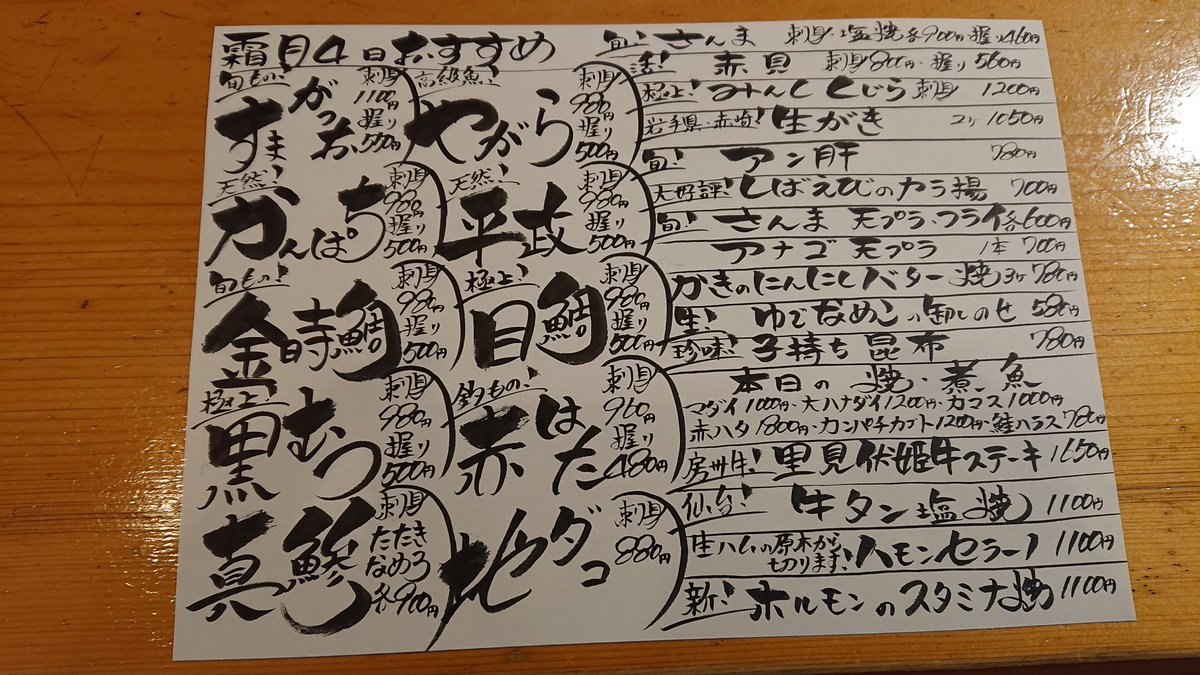 霜月4日おすすめ
旬もの! すまがつお 刺身1100円 握り500円
高級魚! やがら 刺身980円 握り500円
天然! かんぱち 刺身980円 握り500円
天然! 平政 刺身980円 握り500円
旬もの! 金時鯛 刺身980円 握り500円
極上! 目鯛 刺身980円 握り500円
極上! 黒むつ 刺身980円 握り500円
釣もの! 赤はた 刺身960円 握り480円
真鯵 刺身 たたき なめろ 各900円
地ダコ 刺身880円
旬! さんま 刺身・塩焼各900円・握り460円
活! 赤貝 刺身800円・握り560円
極上! みんくくじら 刺身 1200円
岩手県・赤崎! 生がき 2ヶ1050円
旬! アン肝 780円
大好評! しばえびのカラ揚 700円
旬! さんま 天プラ・フライ各600円
アナゴ天プラ 1本700円
かきのにんにくバター焼3ヶ780円
生! ゆでなめこの卸しのせ 580円
珍味! 子持ち昆布 780円
本日の焼・煮魚
マダイ1000円・大ハナダイ1200円・カマス1000円
赤ハタ1800円・カンパチカブト1200円・鮭ハラス780円
房州牛! 里見伏姫牛ステーキ 1650円
仙台! 牛タン塩焼 1100円
生ハムの原木から切ります! ハモンセラーノ 1100円
新! ホルモンのスタミナ焼 1100円